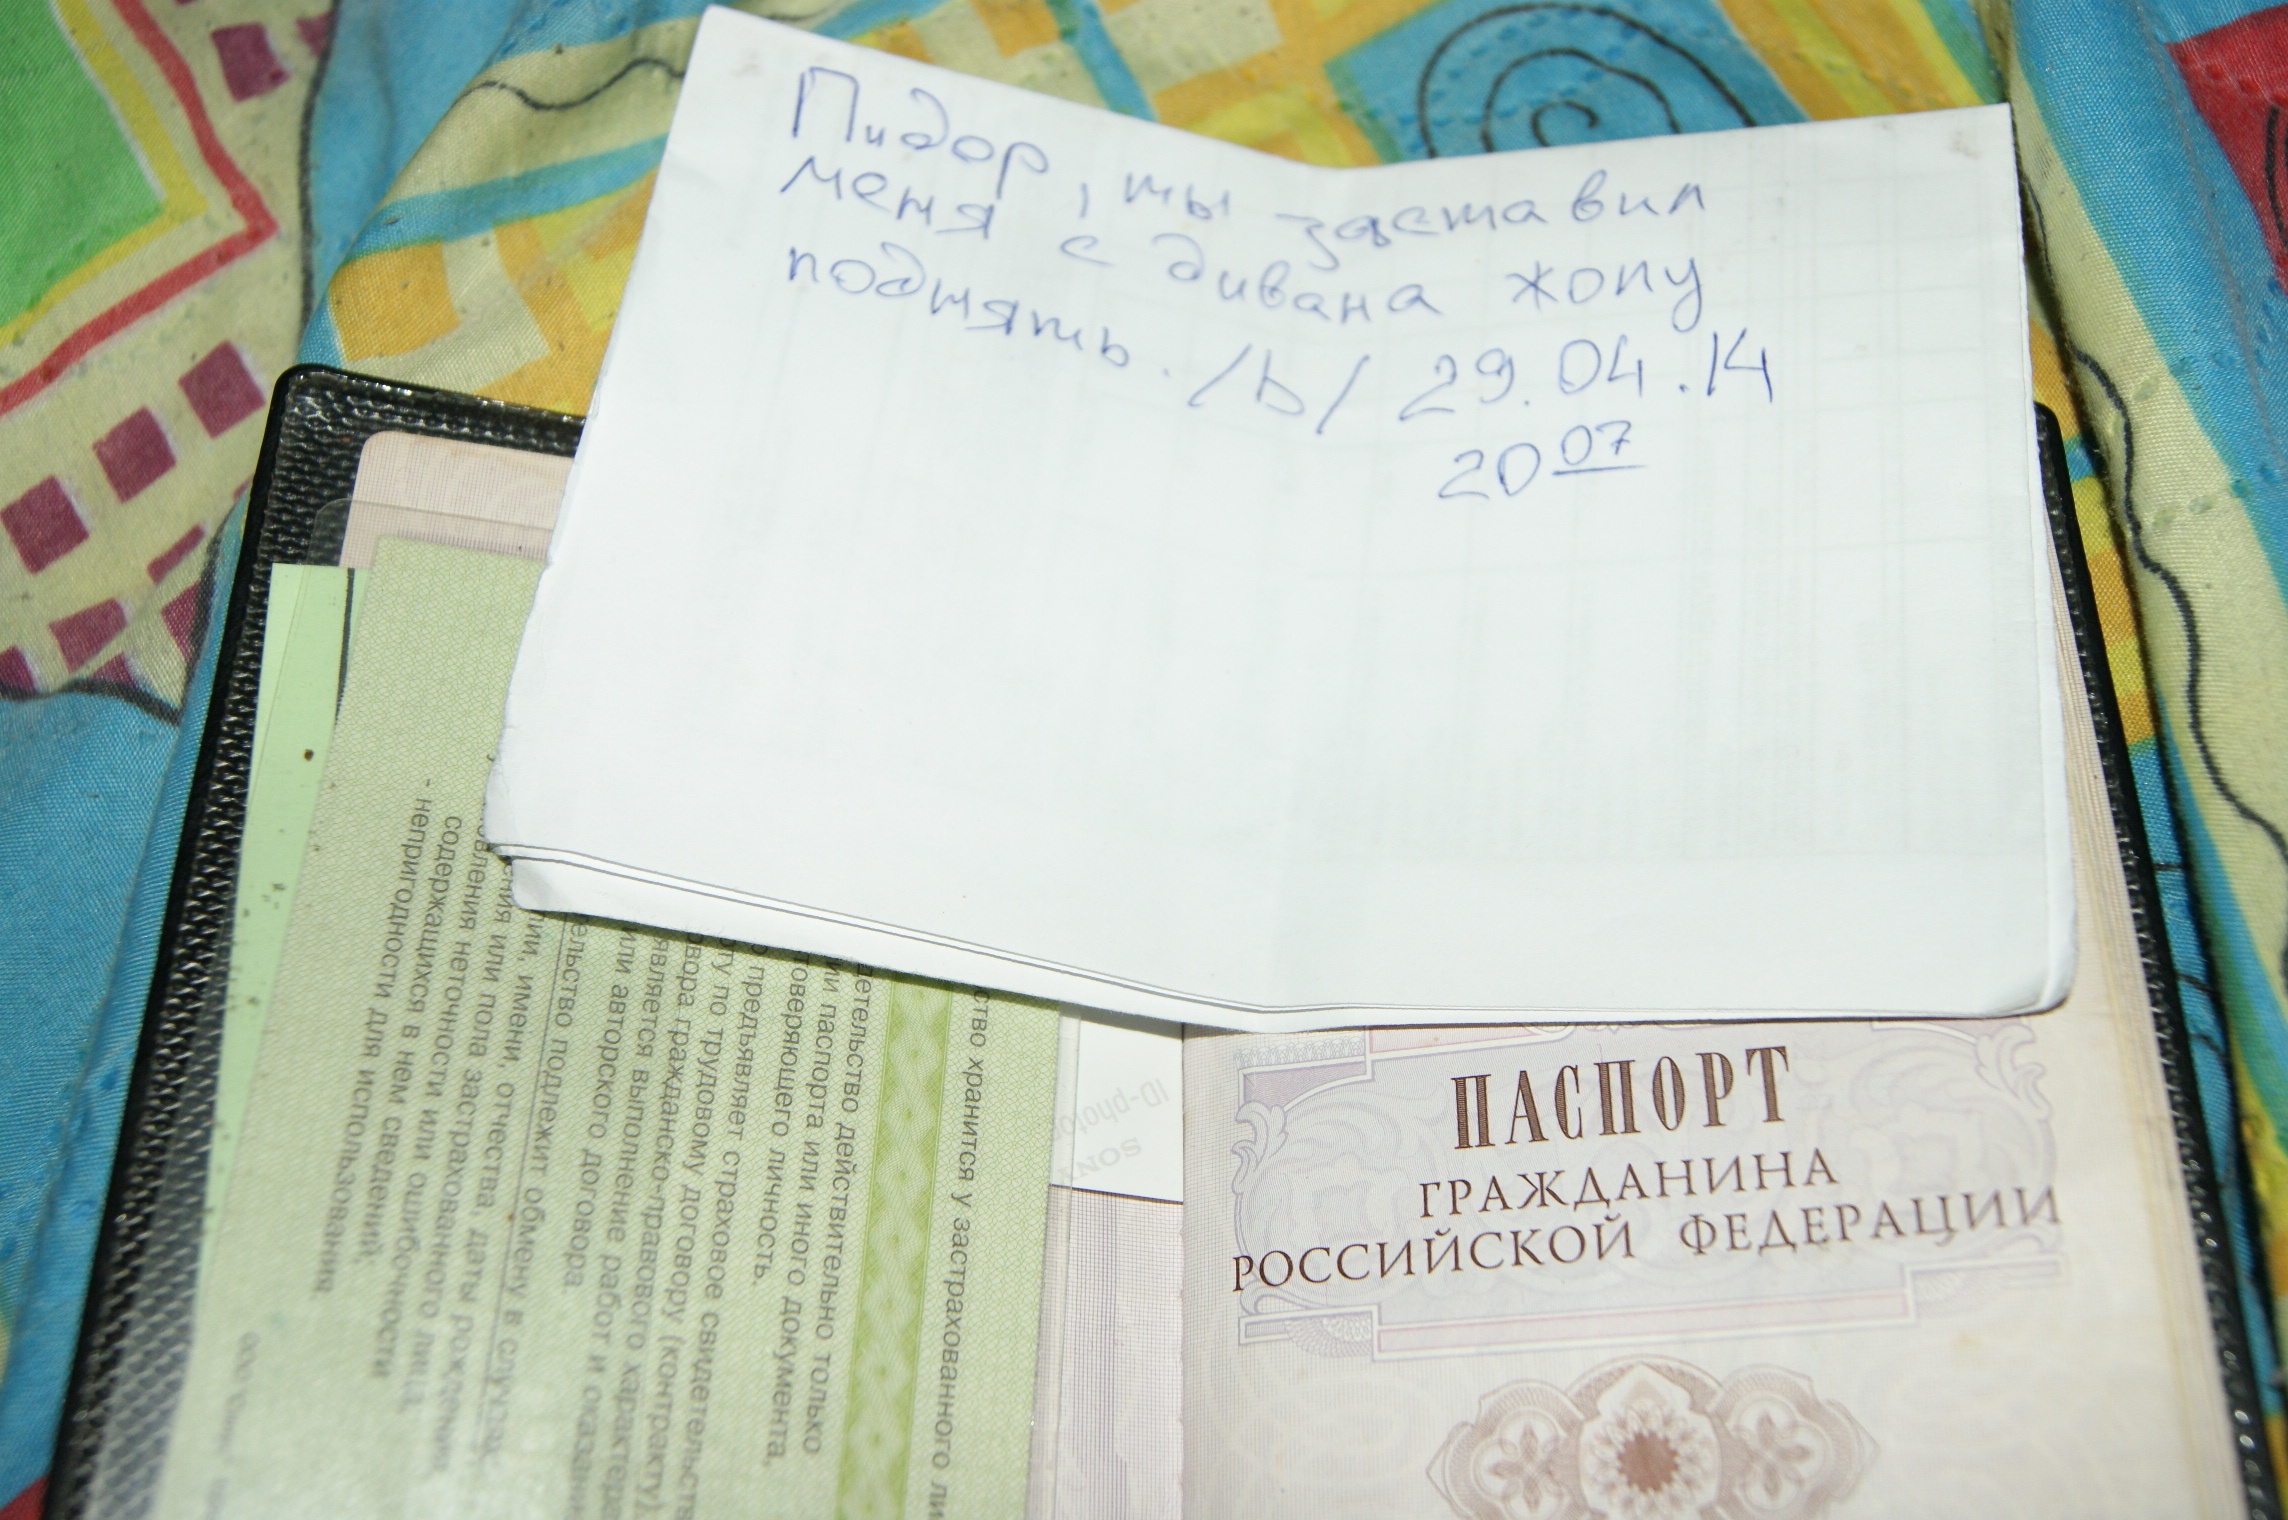 Пидор, ты заставил
меня с дивана жопу
поднять. /b/ 29.04.14
20 07
ство хранится у застрахованного ли
детельство действительно только
ии паспорта или иного документа,
товеряющего личность.
предъявляет страховое свидетельств
гу по трудовому договору (контракту),
вора гражданско-правового характера
является выполнение работ и оказани
или авторского договора.
ельство подлежит обмену в случаях
имени, отчества, даты рождения
или пола застрахованного лица,
содержания неточности или ошибочности
содержащихся в нем сведений,
- непригодности для использования.
SONY
ID-photo
ПАСПОРТ
ГРАЖДАНИНА
РОССИЙСКОЙ ФЕДЕРАЦИИ